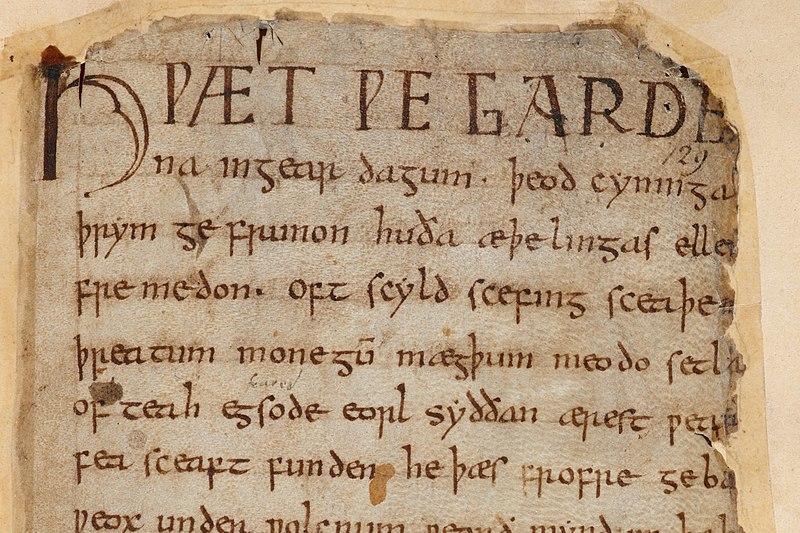 HǷÆT ǷE GARDE
129
na ingear dagum · þeod cyninga
þrym ge frunon huða æþelingas elle
fre medon · oft scyld scefing sceaþe
þreatum monegū mægþum meodo setla
of teah egsode eorl syððan ærest ƿear
fea sceaft funden he þæs frofre geba
ƿeox under ƿolcnum ƿeorð myndum